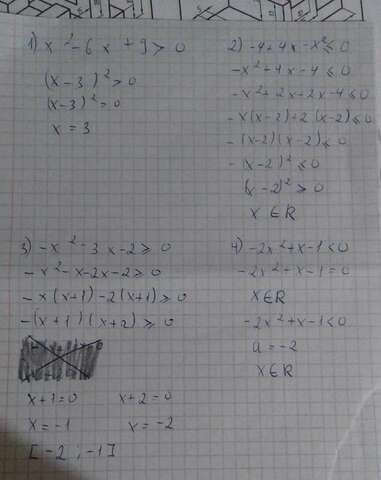 1) x² - 6x + 9 > 0
(x-3)² > 0
(x-3)² = 0
x = 3
2) -4+4x-x² ≤ 0
-x²+4x-4 ≤ 0
-x²+2x+2x-4 ≤ 0
-x(x-2)+2(x-2) ≤ 0
-(x-2)(x-2) ≤ 0
-(x-2)² ≤ 0
(x-2)² > 0
x ∈ R
3) -x² - 3x - 2 ≥ 0
-x² - x - 2x - 2 ≥ 0
-x(x+1) - 2(x+1) ≥ 0
-(x+1)(x+2) ≥ 0
x+1=0 x+2=0
x=-1 x=-2
[-2 ; -1]
4) -2x²+x-1<0
-2x²+x-1=0
x∈R
-2x²+x-1<0
a=-2
x∈R